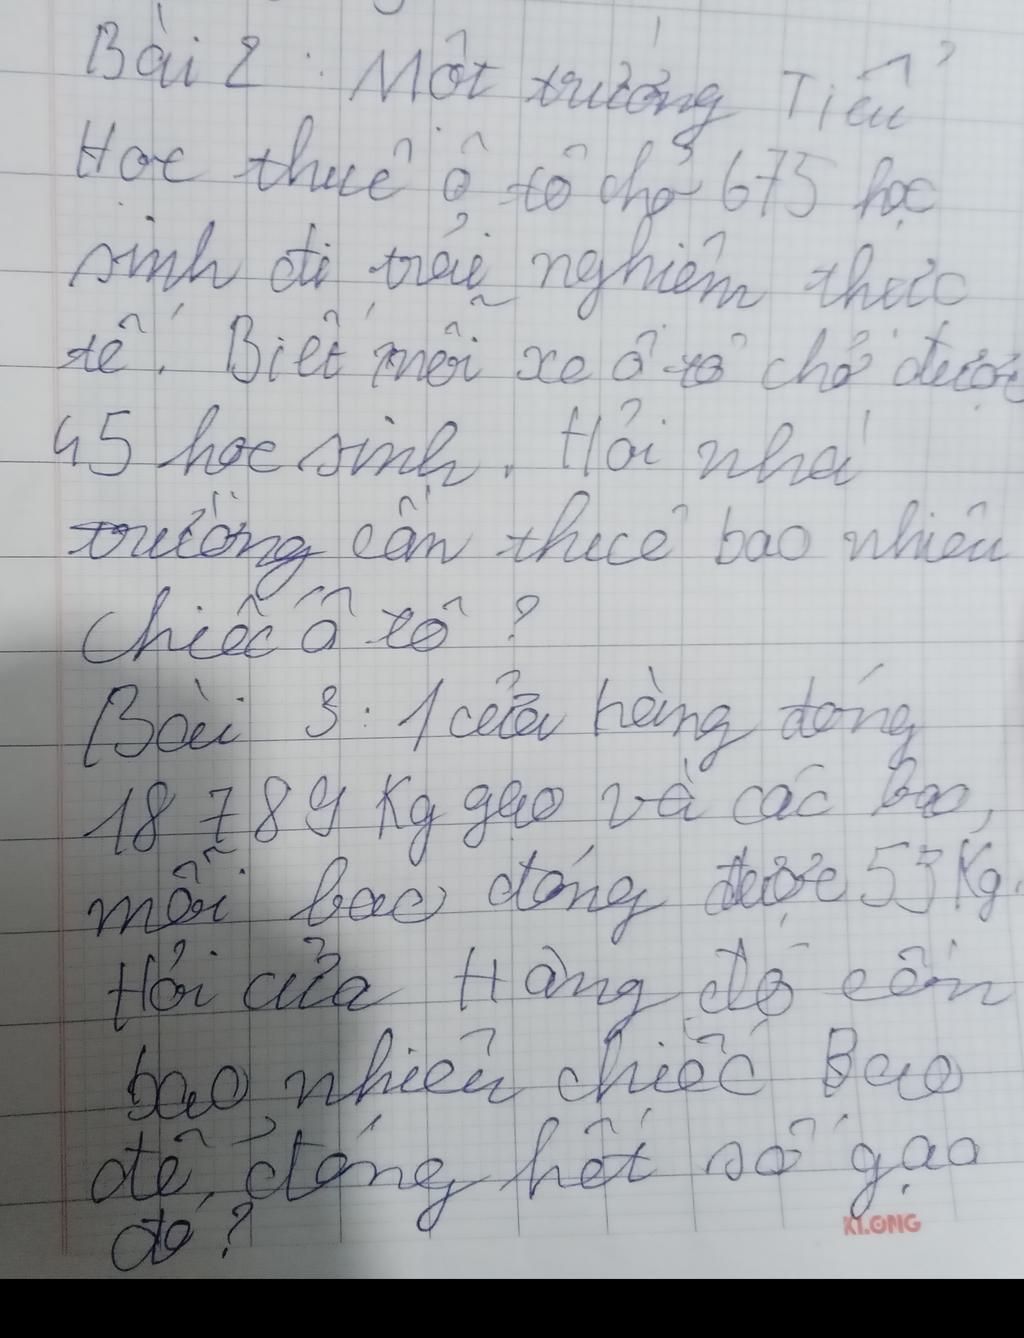 Bài 2: Một trường Tiểu
Học thuê ô tô chở 675 học
sinh đi trải nghiệm thực
tế. Biết mỗi xe ô tô chở được
45 học sinh. Hỏi nhà
trường cần thuê bao nhiêu
chiếc ô tô?
Bài 3: 1 cửa hàng đóng
18 789 Kg gạo và các bao,
mỗi bao đóng được 53 Kg.
Hỏi cửa Hàng đó cần
bao nhiêu chiếc Bao
để đóng hết số gạo
đó?
KLONG